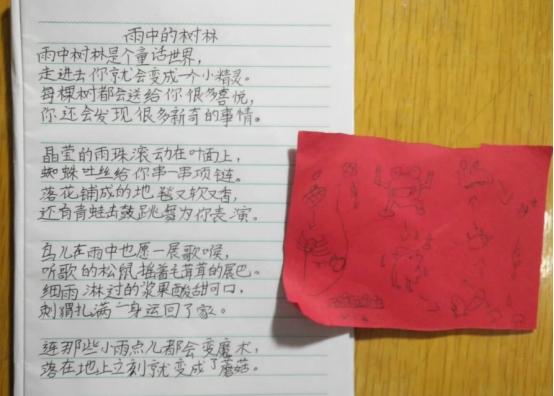 雨中的树林
雨中树林是个童话世界，
走进去你就会变成一个小精灵。
每棵树都会送给你很多喜悦，
你还会发现很多新奇的事情。
晶莹的雨珠滚动在叶面上，
蜘蛛吐丝给你串一串项链。
落花铺成的地毯又软又香，
还有青蛙击鼓跳舞为你表演。
鸟儿在雨中也愿一展歌喉，
听歌的松鼠摇着毛茸茸的尾巴。
细雨淋过的浆果酸甜可口，
刺猬扎满一身运回了家。
连那些小雨点儿都会变魔术，
落在地上立刻就变成了蘑菇。